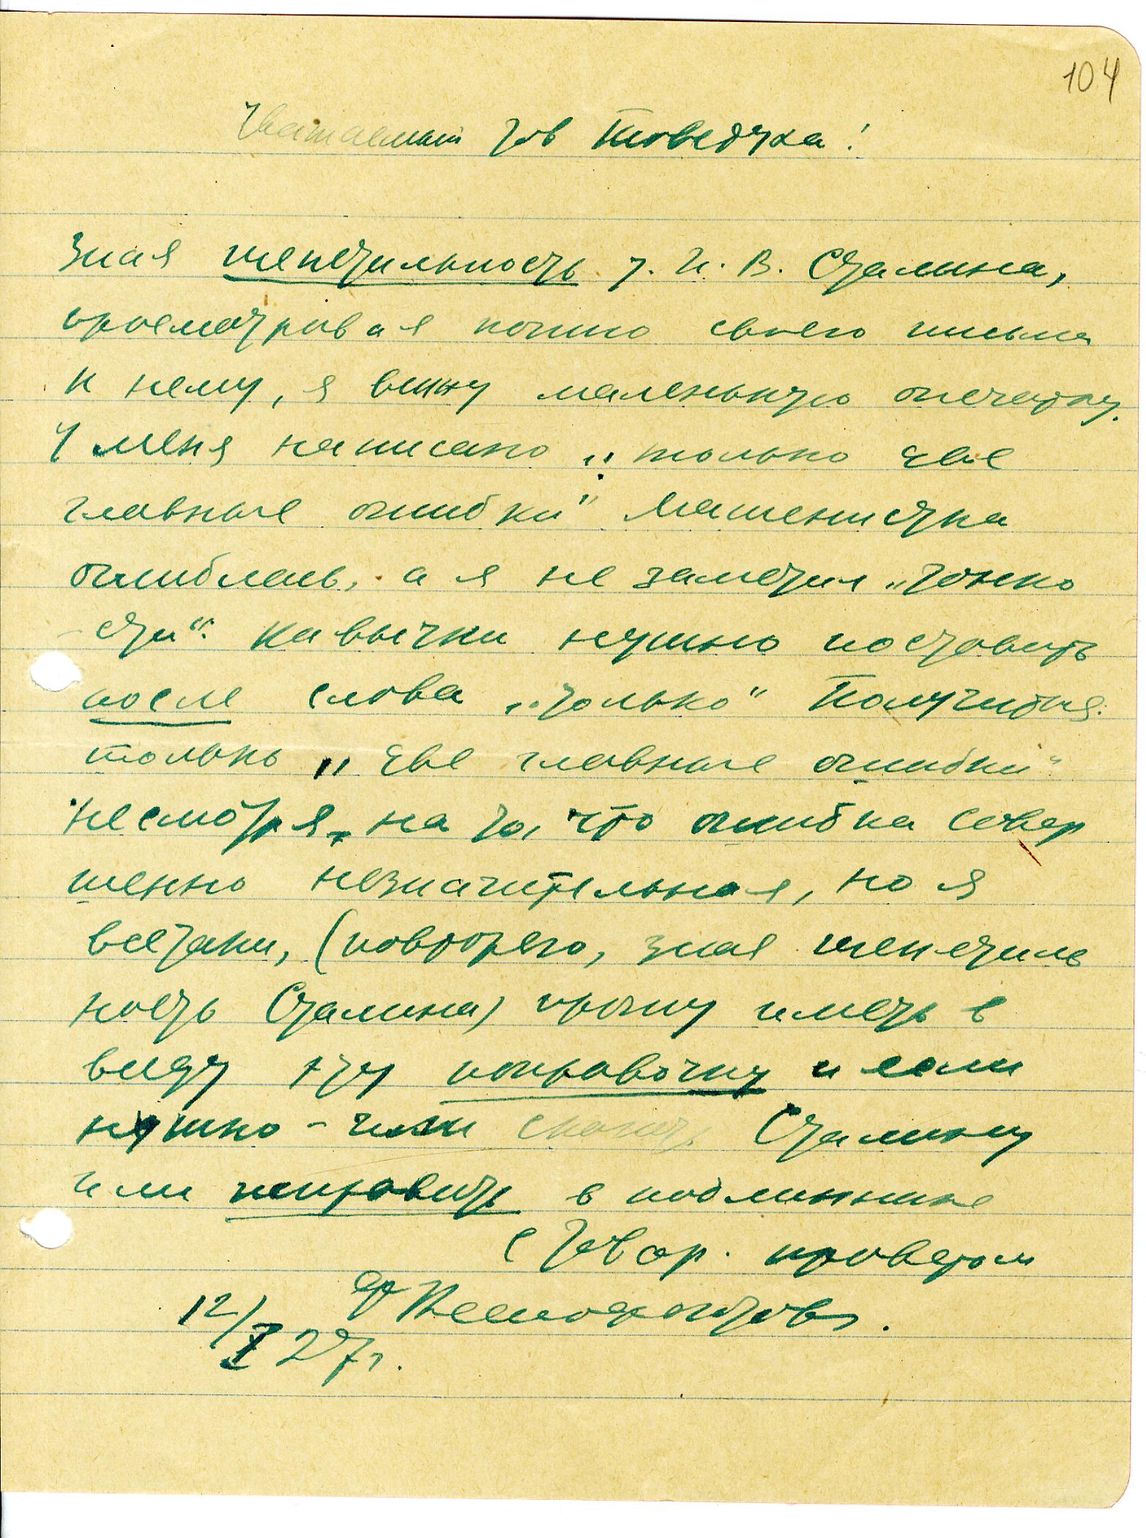 104
Уважаемый тов Товстуха!
Зная щепетильность т. И. В. Сталина,
просматривая копию своего письма
к нему, я вижу маленькую опечатку.
У меня написано „только две
главные ошибки“ Машенистка
ошиблась, а я не заметил „тонко
сти“. Кавычки нужно поставить
после слова „только“ Получится:
только „две главные ошибки“
Несмотря, на то, что ошибка совер
шенно незначительная, но я
всетаки, (повторяю, зная щепетиль
ность Сталина) прошу иметь в
виду эту поправочку и если
нужно - или сказать Сталину
или исправить в подлиннике
с товар. приветом
12/I 27 г.